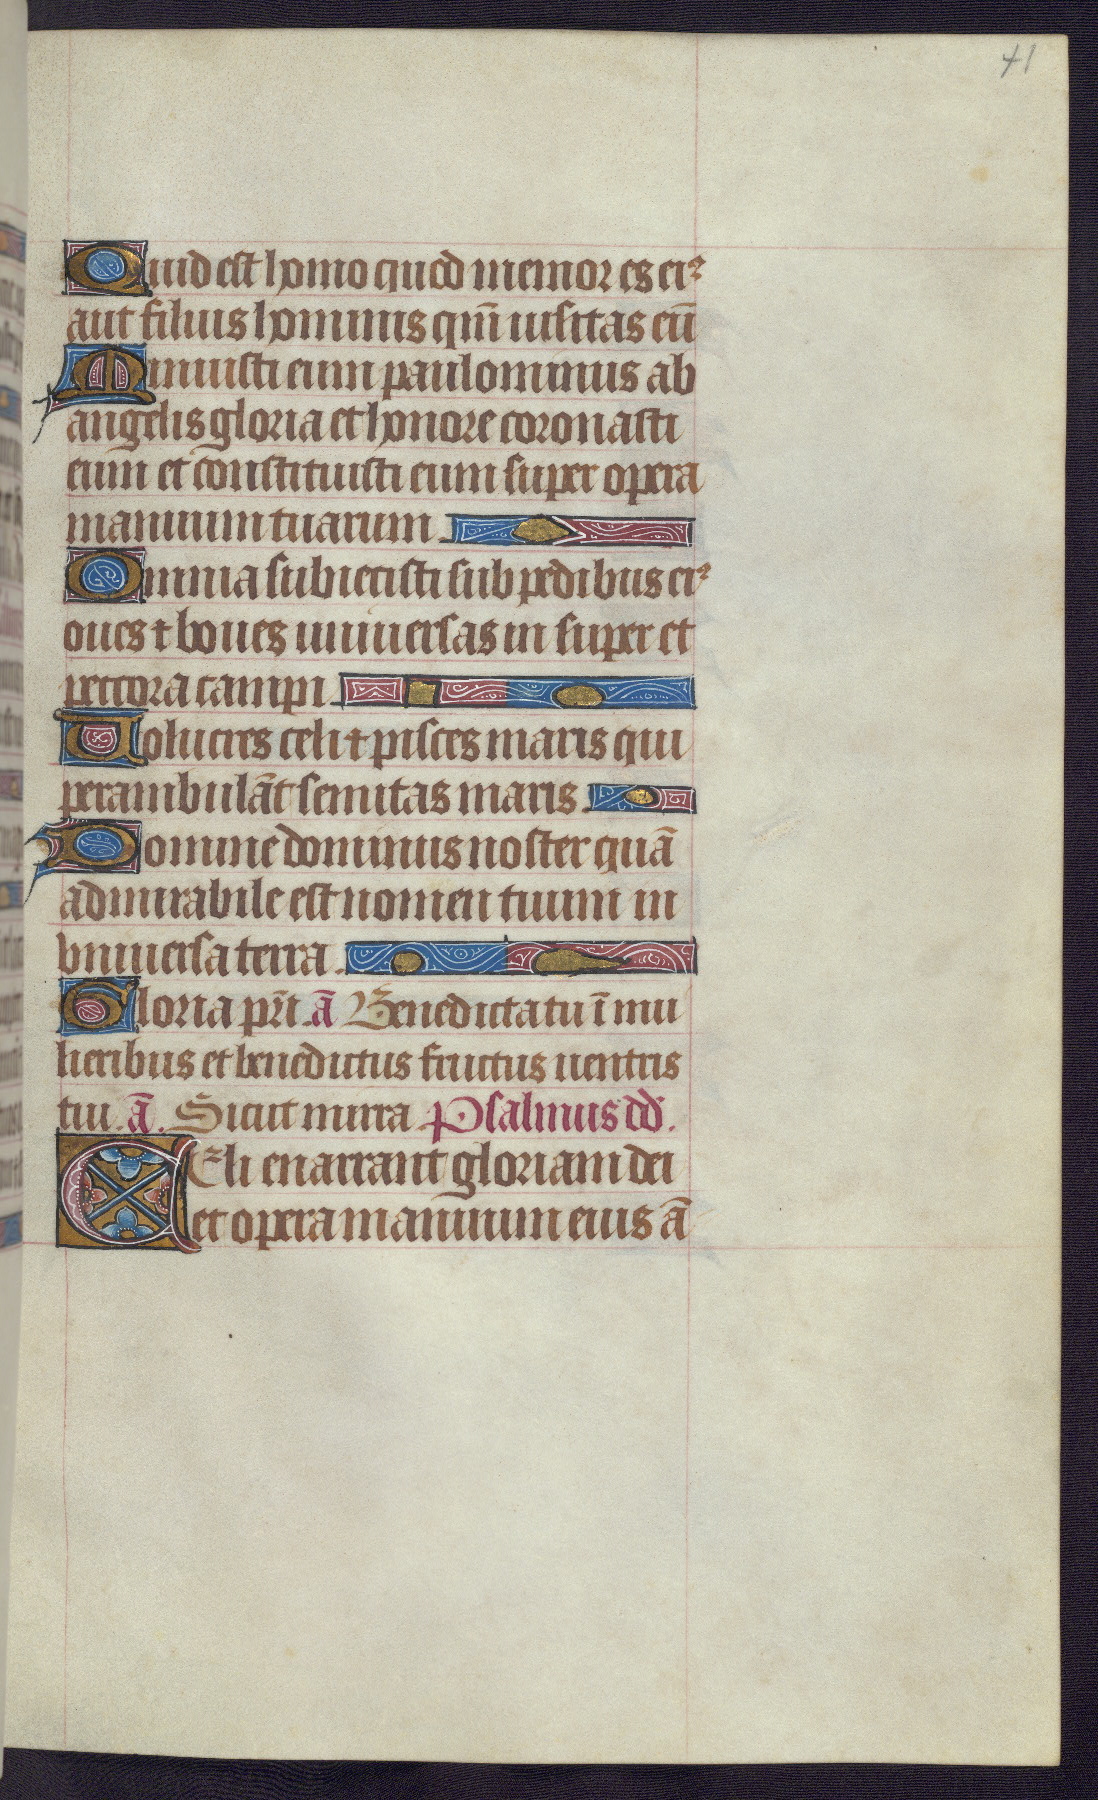 41
Quid est homo quod memor es eiꝰ
aut filius hominis qm̄ uisitas eū
Minuisti eum paulominus ab
angelis gloria et honore coronasti
eum et constituisti eum super opera
manuum tuarum.
Omnia subiecisti sub pedibus eiꝰ
oues ⁊ boues uniuersas in super et
peccora campi.
Uolucres celi ⁊ pisces maris qui
perambulāt semitas maris.
Domine dominus noster quā
admirabile est nomen tuum in
vniuersa terra.
Gloria pr̄i. ā Benedicta tu ī mu
lieribus et benedictus fructus uentris
tui. ā. Sicut mirra Psalmus dd̄.
Celi enarrant gloriam dei
et opera manuum eius ā